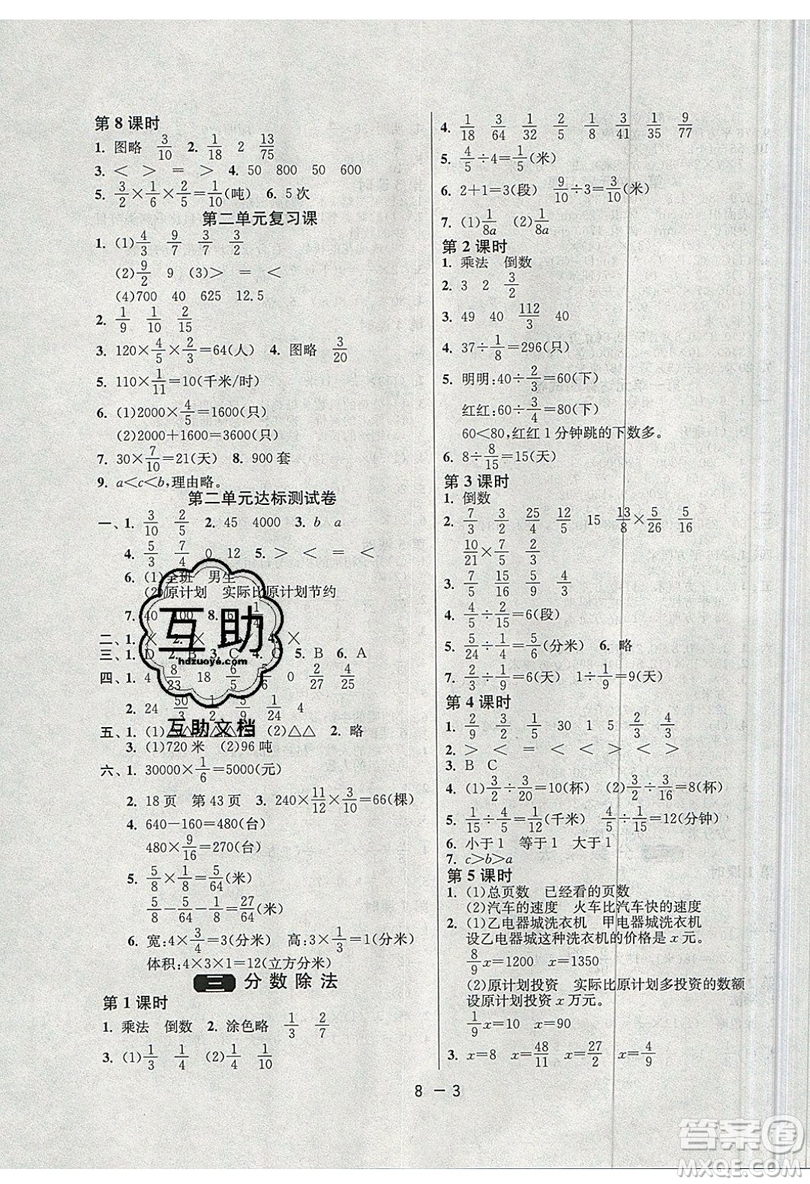 第 8 课时
1. 图略 3/10 2. 1/18 2 13/75
3. < > = > 4. 50 800 50 600
5. 3/2×1/6×2/5=1/10(吨) 6. 5 次
第二单元复习课
1. (1)4/3 9/7 3/7 3/2
(2)9/2 9 (3)> = <
(4)700 40 625 12.5
2. 1/9 1/10 2/15
3. 120×4/5×2/3=64(人) 4. 图略 3/20
5. 110×1/11=10(千米/时)
6. (1)2000×4/5=1600(只)
(2)2000+1600=3600(只)
7. 30×7/10=21(天) 8. 900 套
9. a<c<b,理由略。
第二单元达标测试卷
一、1. 3/10 2/5 2. 45 4000 3. b a
4. 5/3 7/4 0 12 5. > < = <
6. (1)全班 男生
(2)原计划 实际比原计划节约
7. 40 8. 1/4
二、1. × 2. 4. ×
三、1. D 2. B 3. 4. C 5. B 6. A
四、1. 4 18
2. 24
五、1. (2)△△ 2. 略
3. (1)720 米 (2)96 吨
六、1. 30000×1/6=5000(元)
2. 18 页 第 43 页 3. 240×11/12×3/10=66(棵)
4. 640-160=480(台)
480×9/16=270(台)
5. 5/8×4/5=1/2(米)
5/8-5/8=0(米)
6. 宽:4×3/4=3(分米) 高:3×1/3=1(分米)
体积:4×3×1=12(立方分米)
三 分数除法
第 1 课时
1. 乘法 倒数 2. 涂色略 1/3 2/7
3. (1)1/3 1/4 (2)1/5 1/2
4. 1/18 3/64 2/32 1/8 3/41 6/35 9/77
5. 4/5÷4=1/5(米)
6. 2+1=3(段) 9/10÷3=3/10(米)
7. (1)1/8a (2)1/8a
第 2 课时
1. 乘法 倒数
2. 3 2 3/2
3. 49 40 112/3 49
4. 37÷1/8=296(只)
5. 明明:40÷2/3=60(下)
红红:60÷3/4=80(下)
60<80,红红 1 分钟跳的下数多。
6. 8÷8/15=15(天)
第 3 课时
1. 倒数
2. 7/4 3/2 25/4 12/5 15 13/8×5/26 5/16
10/21×7/5 2/3
3. 7/15 8/15 4/5 5/6 7/4 5/4
4. 4/5÷2/15=6(段)
5. 5/24÷1/4=5/6(分米) 6. 略
7. 2/3÷2/9=3(天) 1÷1/9=9(天)
第 4 课时
1. 2/9 3/4 3/5 30 1 5/4 5/6
2. > < = > < > < >
3. B C
4. (1)3÷3/10=10(杯) (2)3÷3/8=8(杯)
5. 1/15÷4/5=1/12(千米) 4/5÷1/15=12(分钟)
6. 小于 1 等于 1 大于 1
7. c>b>a
第 5 课时
1. (1)总页数 已经看的页数
(2)汽车的速度 火车比汽车快的速度
2. (1)乙电器城洗衣机 甲电器城洗衣机
设乙电器城这种洗衣机的价格是 x 元。
8/9x=1200 x=1350
(2)原计划投资 实际比原计划多投资的数额
设原计划投资 x 万元。
1/9x=10 x=90
3. x=8 x=48/11 x=27/2 x=4/9
8 — 3
互助
hdzuoye.com
互助文档
答案圈
MXQE.COM